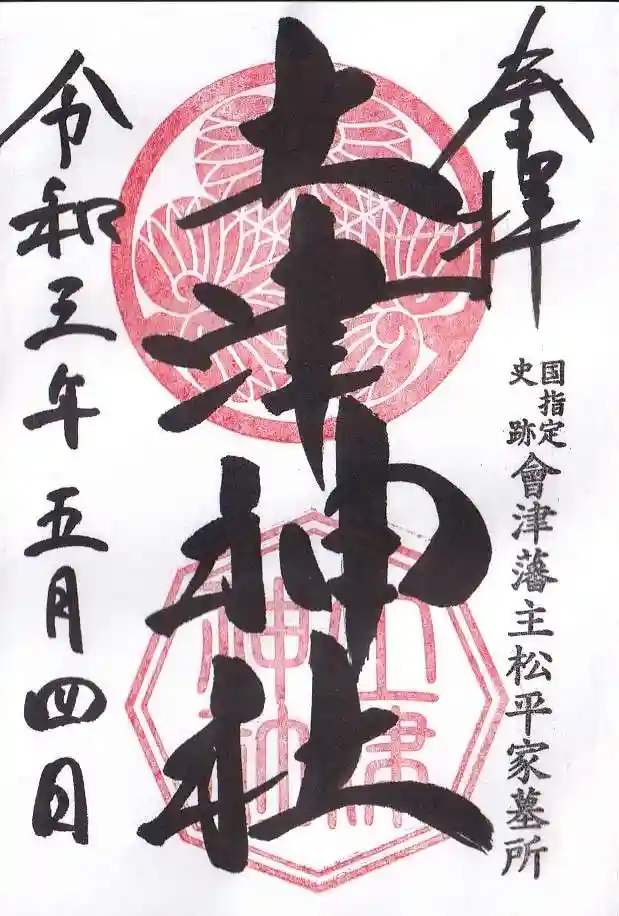 奉拝
国指定
史跡
會津藩主松平家墓所
土津神社
土津
神社
令和三年五月四日